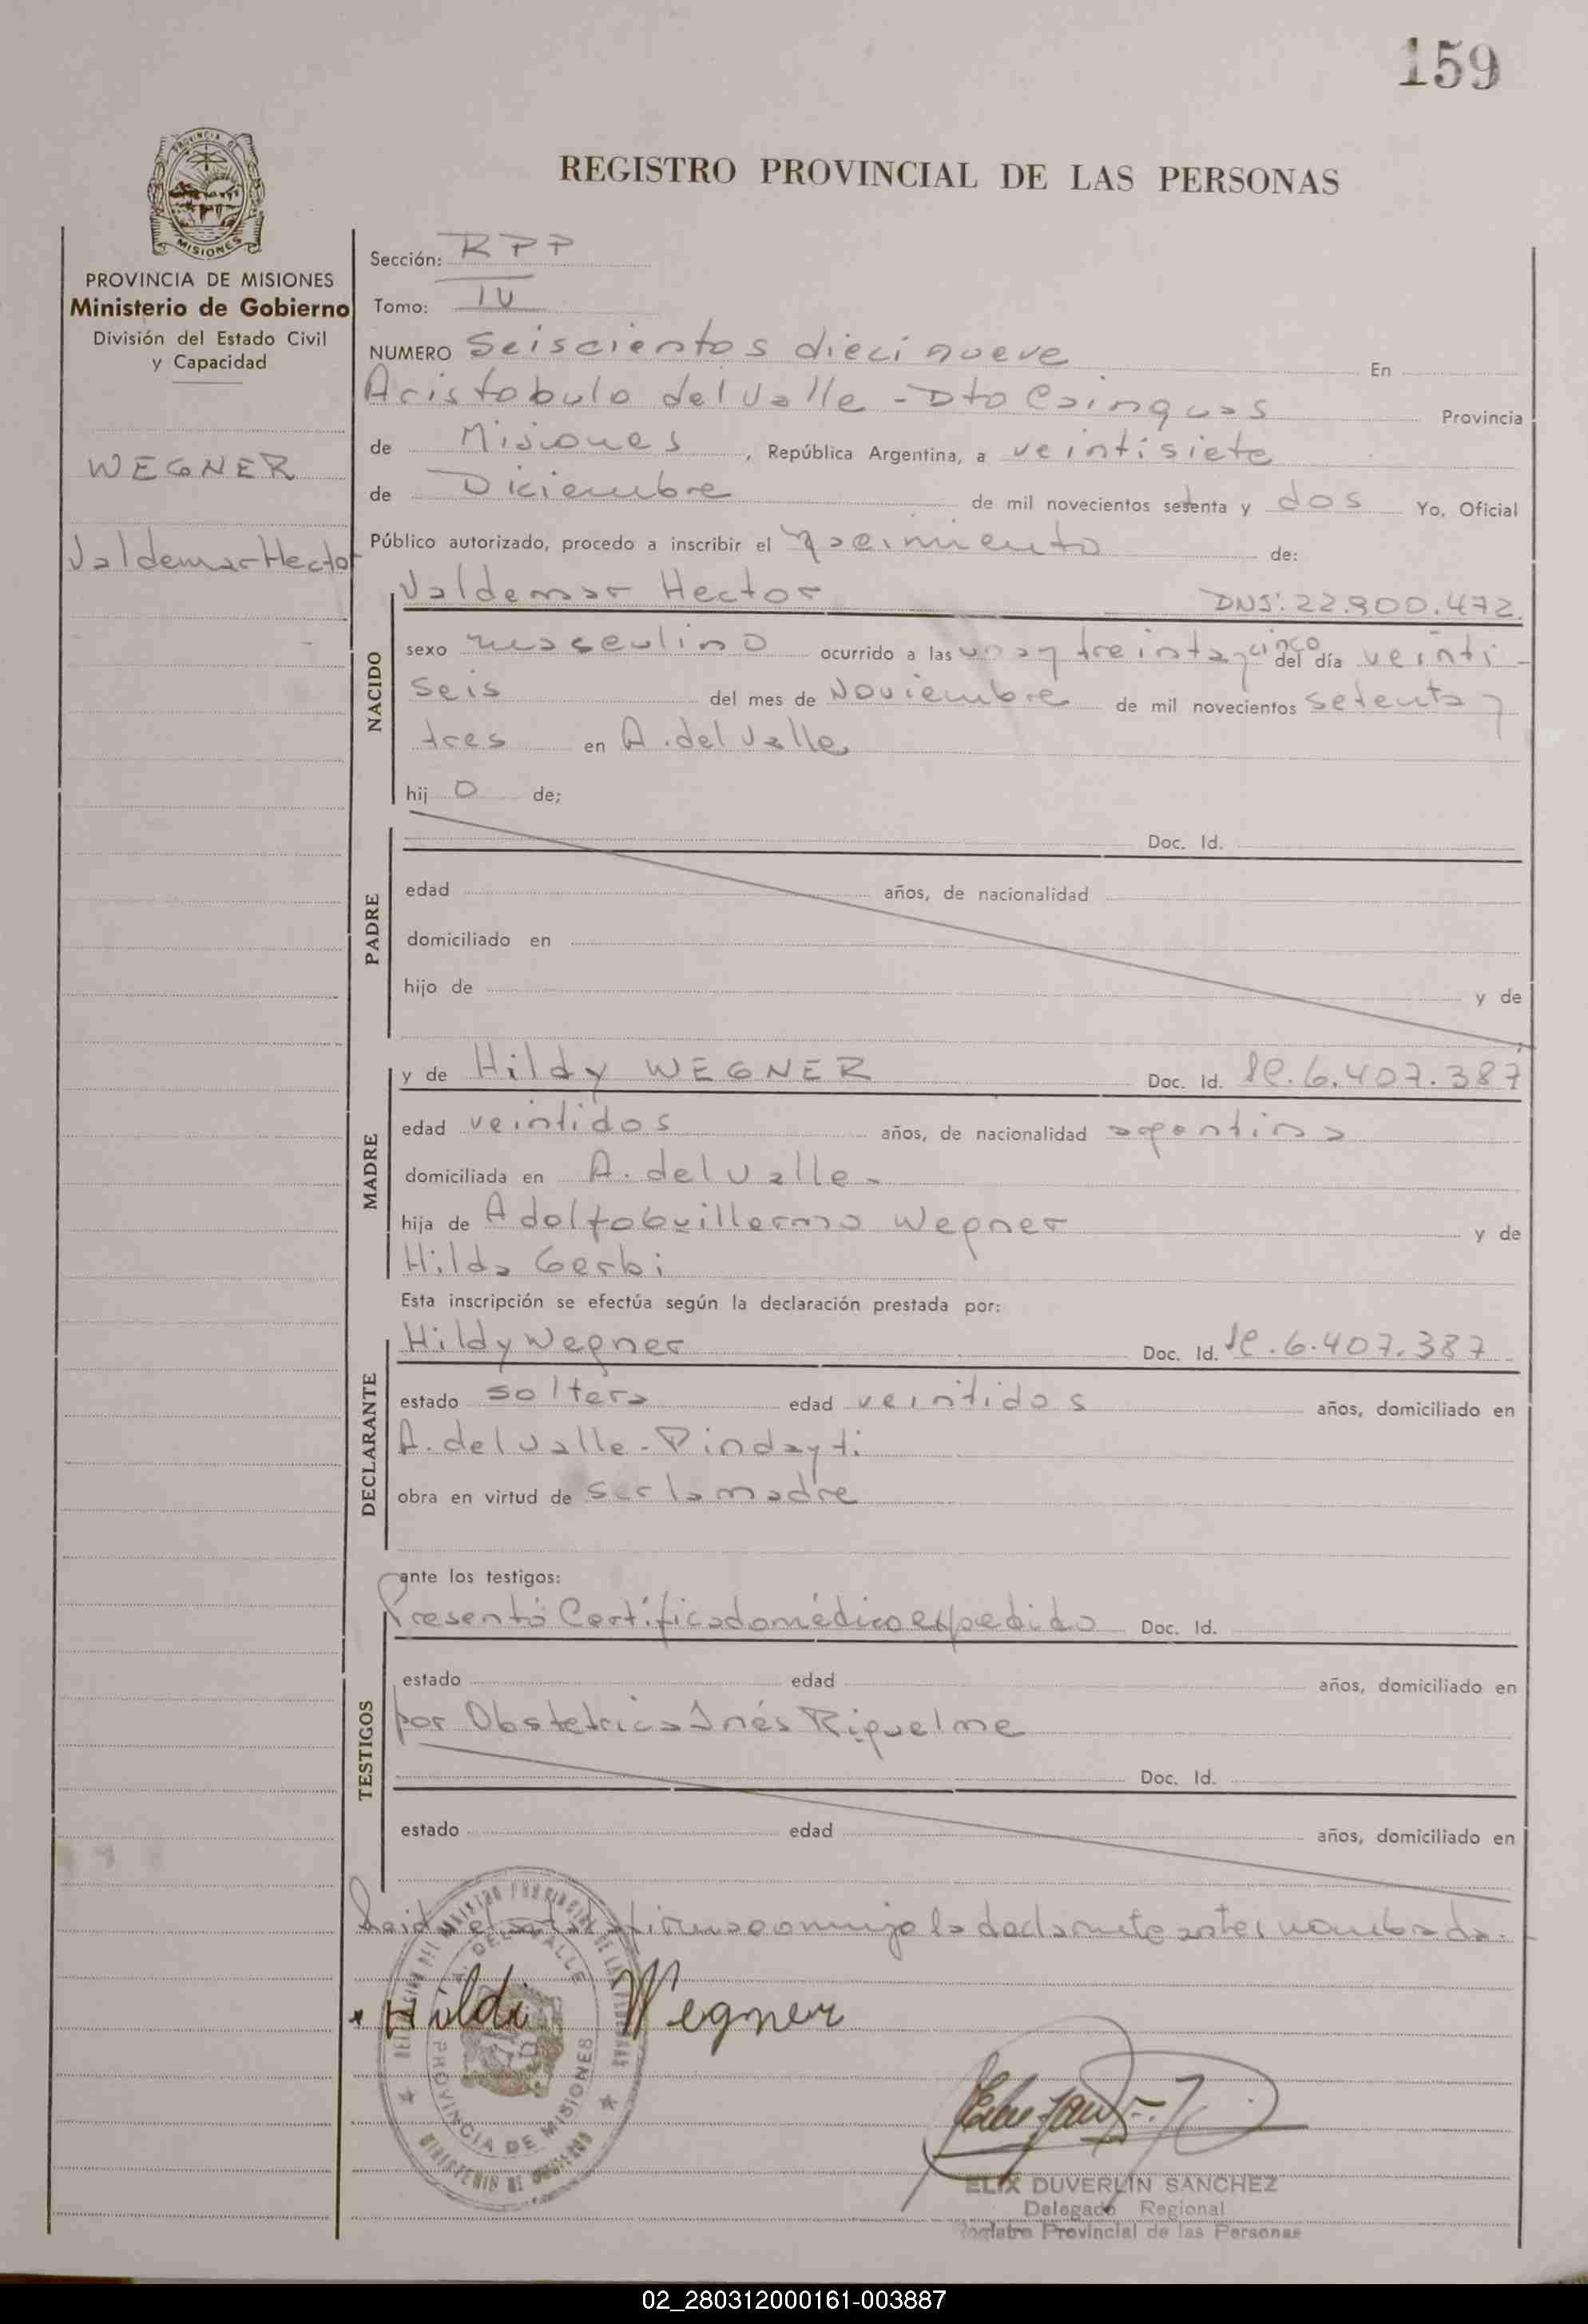 159
REGISTRO PROVINCIAL DE LAS PERSONAS
PROVINCIA DE MISIONES
Ministerio de Gobierno
División del Estado Civil
y Capacidad
WEGNER
Valdemar Hector
Sección: RPP
Tomo: IV
NUMERO Seiscientos diecinueve En
Aristobulo del Valle - Dto Cainguas Provincia
de Misiones, República Argentina, a veintisiete
de Diciembre de mil novecientos setenta y dos Yo, Oficial
Público autorizado, procedo a inscribir el nacimiento de:
NACIDO
Valdemar Hector DNI: 22.900.472
sexo masculino ocurrido a las una y treinta y cinco del día veinti-
seis del mes de Noviembre de mil novecientos setenta y
tres en A. del Valle
hij o de;
PADRE
Doc. Id.
edad años, de nacionalidad
domiciliado en
hijo de y de
MADRE
y de Hildy WEGNER Doc. Id. LC. 6.407.387
edad veintidos años, de nacionalidad argentina
domiciliada en A. del Valle -
hija de Adolfo Guillermo Wegner y de
Hilda Gerbi
Esta inscripción se efectúa según la declaración prestada por:
DECLARANTE
Hildy Wegner Doc. Id. LC. 6.407.387
estado soltera edad veintidos años, domiciliado en
A. del Valle - Pindayti
obra en virtud de ser la madre
ante los testigos:
TESTIGOS
Presentó Certificado médico expedido Doc. Id.
estado edad años, domiciliado en
por Obstetrica Inés Riquelme
Doc. Id.
estado edad años, domiciliado en
Leida el acta la firma conmigo la declarante antes nombrada.
Hildi Wegner
A. DEL VALLE
PROVINCIA DE MISIONES
MINISTERIO DE GOBIERNO
ELIX DUVERLIN SANCHEZ
Delegado Regional
Registro Provincial de las Personas
02_280312000161-003887